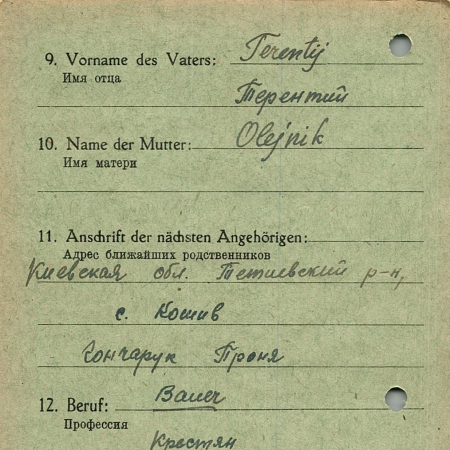 9. Vorname des Vaters: Terentij
Имя отца
Терентий
10. Name der Mutter: Olejnik
Имя матери
11. Anschrift der nächsten Angehörigen:
Адрес ближайших родственников
Киевская обл. Тетиевский р-н,
с. Кошив
Гончарук Проня
12. Beruf: Bauer
Профессия
Крестян